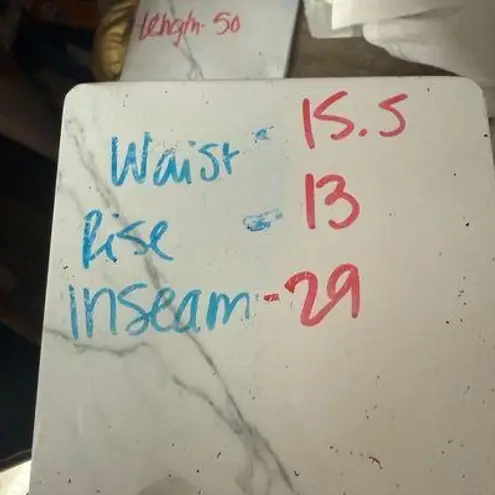 length- 50
Waist- 15.5
Rise - 13
Inseam-29